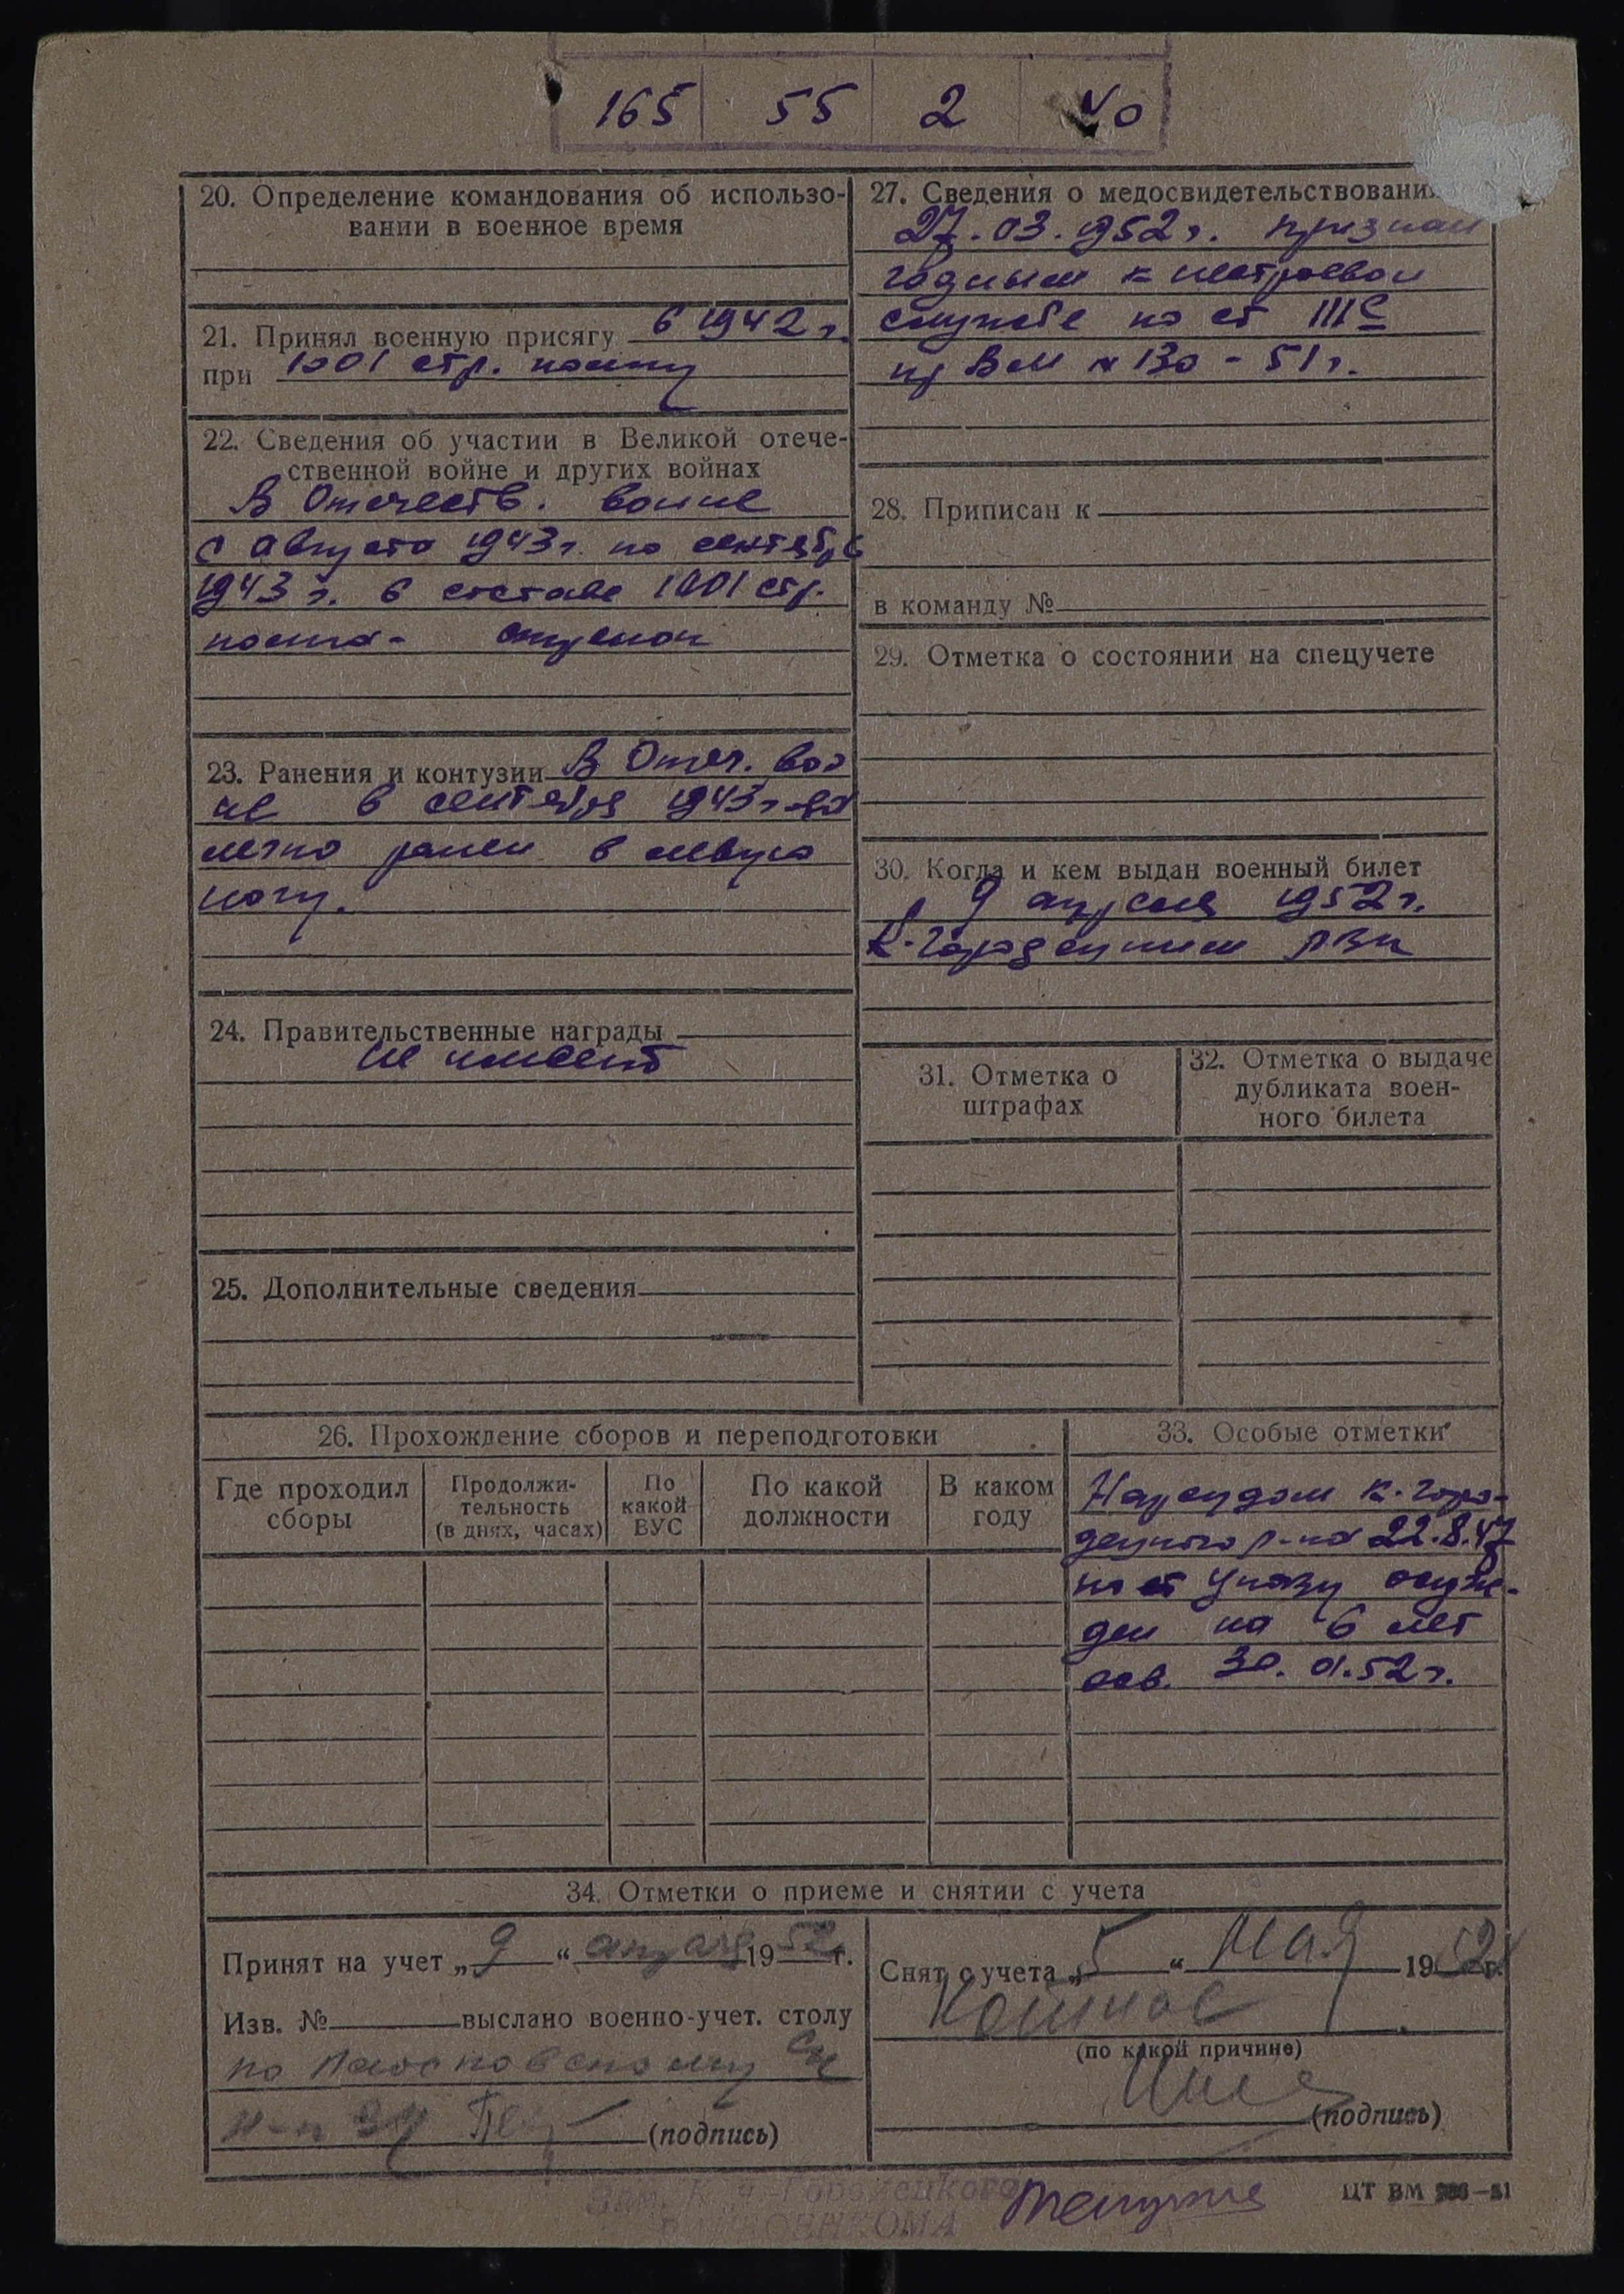 165 55 2 40
20. Определение командования об использо-
вании в военное время
21. Принял военную присягу в 1942 г.
при 1001 стр. полку
22. Сведения об участии в Великой отече-
ственной войне и других войнах
В Отечеств. войне
с августа 1943 г. по сентябрь
1943 г. в составе 1001 стр.
полка-
23. Ранения и контузии В Отеч. вой
не в сентябре 1943 года
легко ранен в левую
ногу.
24. Правительственные награды
не имеет
25. Дополнительные сведения
27. Сведения о медосвидетельствовани
27.03.1952 г. признан
годным к нестроевой
службе по ст III С
пр ВМ № 130-51 г.
28. Приписан к
в команду №
29. Отметка о состоянии на спецучете
30. Когда и кем выдан военный билет
9 апреля 1952 г.
К-Городецким РВК
31. Отметка о
штрафах
32. Отметка о выдаче
дубликата воен-
ного билета
26. Прохождение сборов и переподготовки
Где проходил
сборы
Продолжи-
тельность
(в днях, часах)
По
какой
ВУС
По какой
должности
В каком
году
33. Особые отметки
Нарсудом К-Горо-
децкого р-на 22.8.47
по ст Указу осуж-
ден на 6 лет
осв. 30.01.52 г.
34. Отметки о приеме и снятии с учета
Принят на учет „9“ апреля 1952 г.
Изв. № выслано военно-учет. столу
по
(подпись)
Снят с учета „5“ мая 1952 г.
(по какой причине)
(подпись)
Зам. К Ч-Городецкого
РАЙВОЕНКОМА
ЦТ ВМ -51